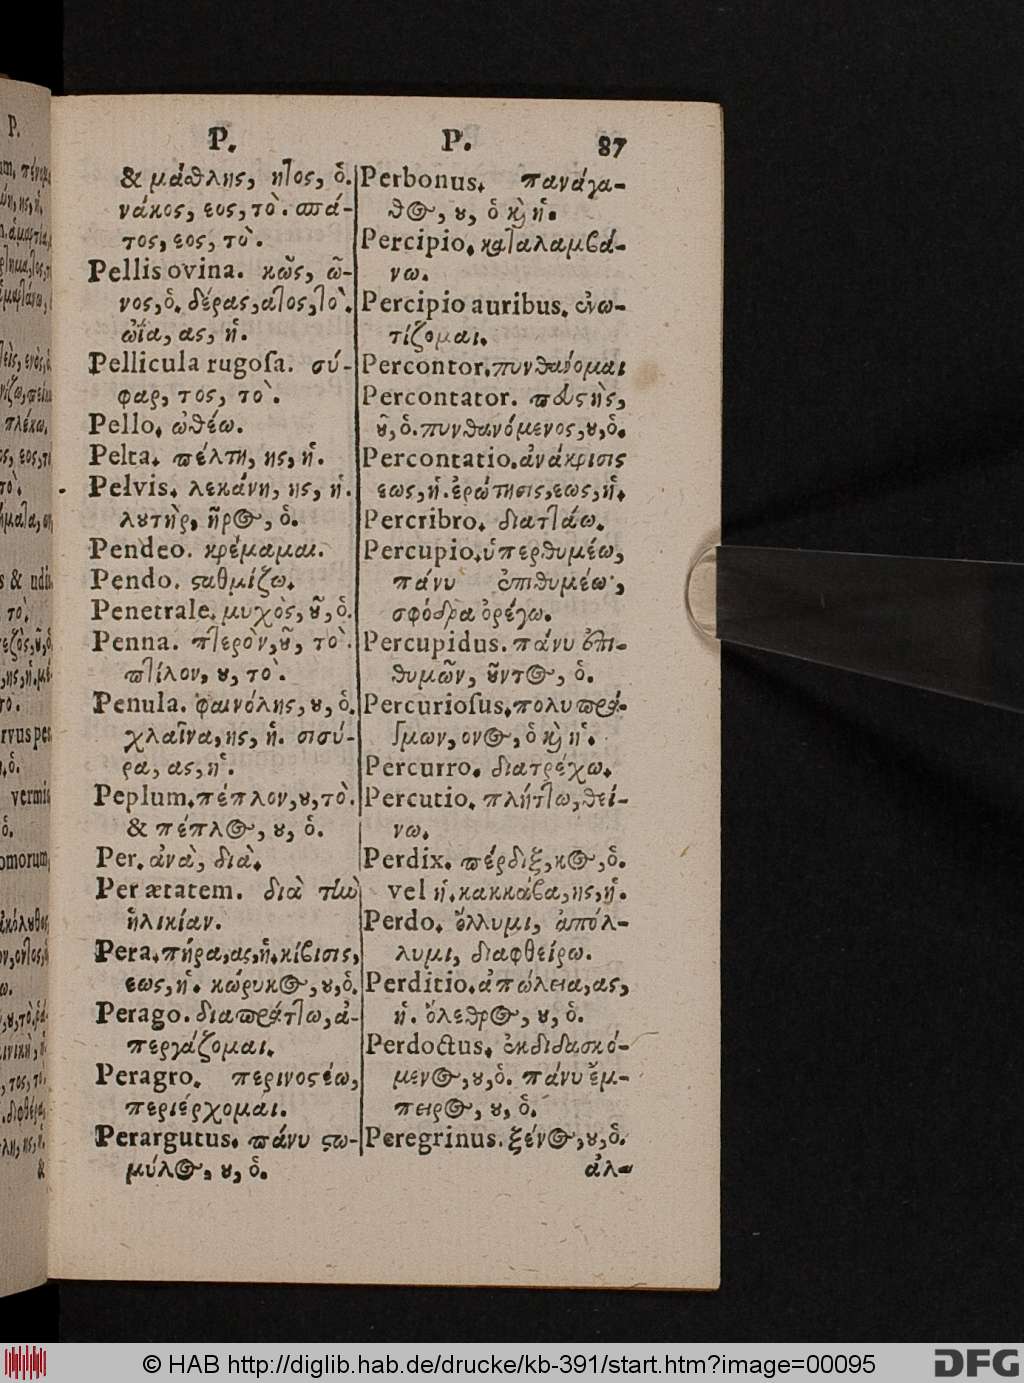 P. P. 87
& μάθλης, ητος, ὁ.
νάκος, εος, τὸ. πά-
τος, εος, τὸ.
Pellis ovina. κῶς, ῶ-
νος, ὁ. δέρας, ατος, τὸ.
ὠΐα, ας, ἡ.
Pellicula rugoſa. σύ-
φαρ, τος, τὸ.
Pello. ὠθέω.
Pelta. πέλτη, ης, ἡ.
Pelvis. λεκάνη, ης, ἡ.
λουτὴρ, ῆρος, ὁ.
Pendeo. κρέμαμαι.
Pendo. σταθμίζω.
Penetrale. μυχὸς, οῦ, ὁ.
Penna. πτερὸν, οῦ, τὸ.
πτίλον, ου, τὸ.
Penula. φαινόλης, ου, ὁ.
χλαῖνα, ης, ἡ. σισύ-
ρα, ας, ἡ.
Peplum. πέπλον, ου, τὸ.
& πέπλος, ου, ὁ.
Per. ἀνὰ, διὰ.
Per ætatem. διὰ τὴν
ἡλικίαν.
Pera. πήρα, ας, ἡ. κίβισις,
εως, ἡ. κώρυκος, ου, ὁ.
Perago. διαπράττω, ἀ-
περγάζομαι.
Peragro. περινοστέω,
περιέρχομαι.
Perargutus. πάνυ στω-
μύλος, ου, ὁ.
Perbonus. πανάγα-
θος, ου, ὁ καὶ ἡ.
Percipio. καταλαμβά-
νω.
Percipio auribus. ἐνω-
τίζομαι.
Percontor. πυνθάνομαι
Percontator. πευστὴς,
οῦ, ὁ. πυνθανόμενος, ου, ὁ.
Percontatio. ἀνάκρισις
εως, ἡ. ἐρώτησις, εως, ἡ.
Percribro. διαττάω.
Percupio. ὑπερθυμέω,
πάνυ ἐπιθυμέω,
σφόδρα ὀρέγω.
Percupidus. πάνυ ἐπι-
θυμῶν, οῦντος, ὁ.
Percurioſus. πολυπρά-
γμων, ονος, ὁ καὶ ἡ.
Percurro. διατρέχω.
Percutio. πλήττω, θεί-
νω.
Perdix. πέρδιξ, κος, ὁ.
vel ἡ. κακκάβα, ης, ἡ.
Perdo. ὄλλυμι, ἀπόλ-
λυμι, διαφθείρω.
Perditio. ἀπώλεια, ας,
ἡ. ὄλεθρος, ου, ὁ.
Perdoctus. ἐκδιδασκό-
μενος, ου, ὁ. πάνυ ἔμ-
πειρος, ου, ὁ.
Peregrinus. ξένος, ου, ὁ.
ἀλ-
© HAB http://diglib.hab.de/drucke/kb-391/start.htm?image=00095
DFG